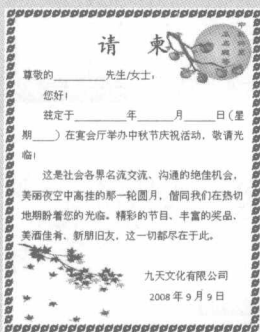 请 柬
尊敬的________先生/女士：
您好！
兹定于________年______月______日（星
期____）在宴会厅举办中秋节庆祝活动，敬请光
临！
这是社会各界名流交流、沟通的绝佳机会，
美丽夜空中高挂的那一轮圆月，偕同我们在热切
地期盼着您的光临。精彩的节目、丰富的奖品、
美酒佳肴、新朋旧友，这一切都尽在于此。
九天文化有限公司
2008 年 9 月 9 日